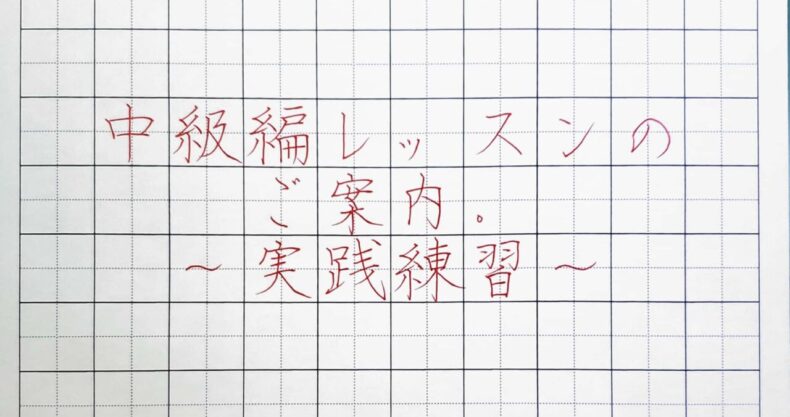 中級編レッスンの
ご案内。
～実践練習～